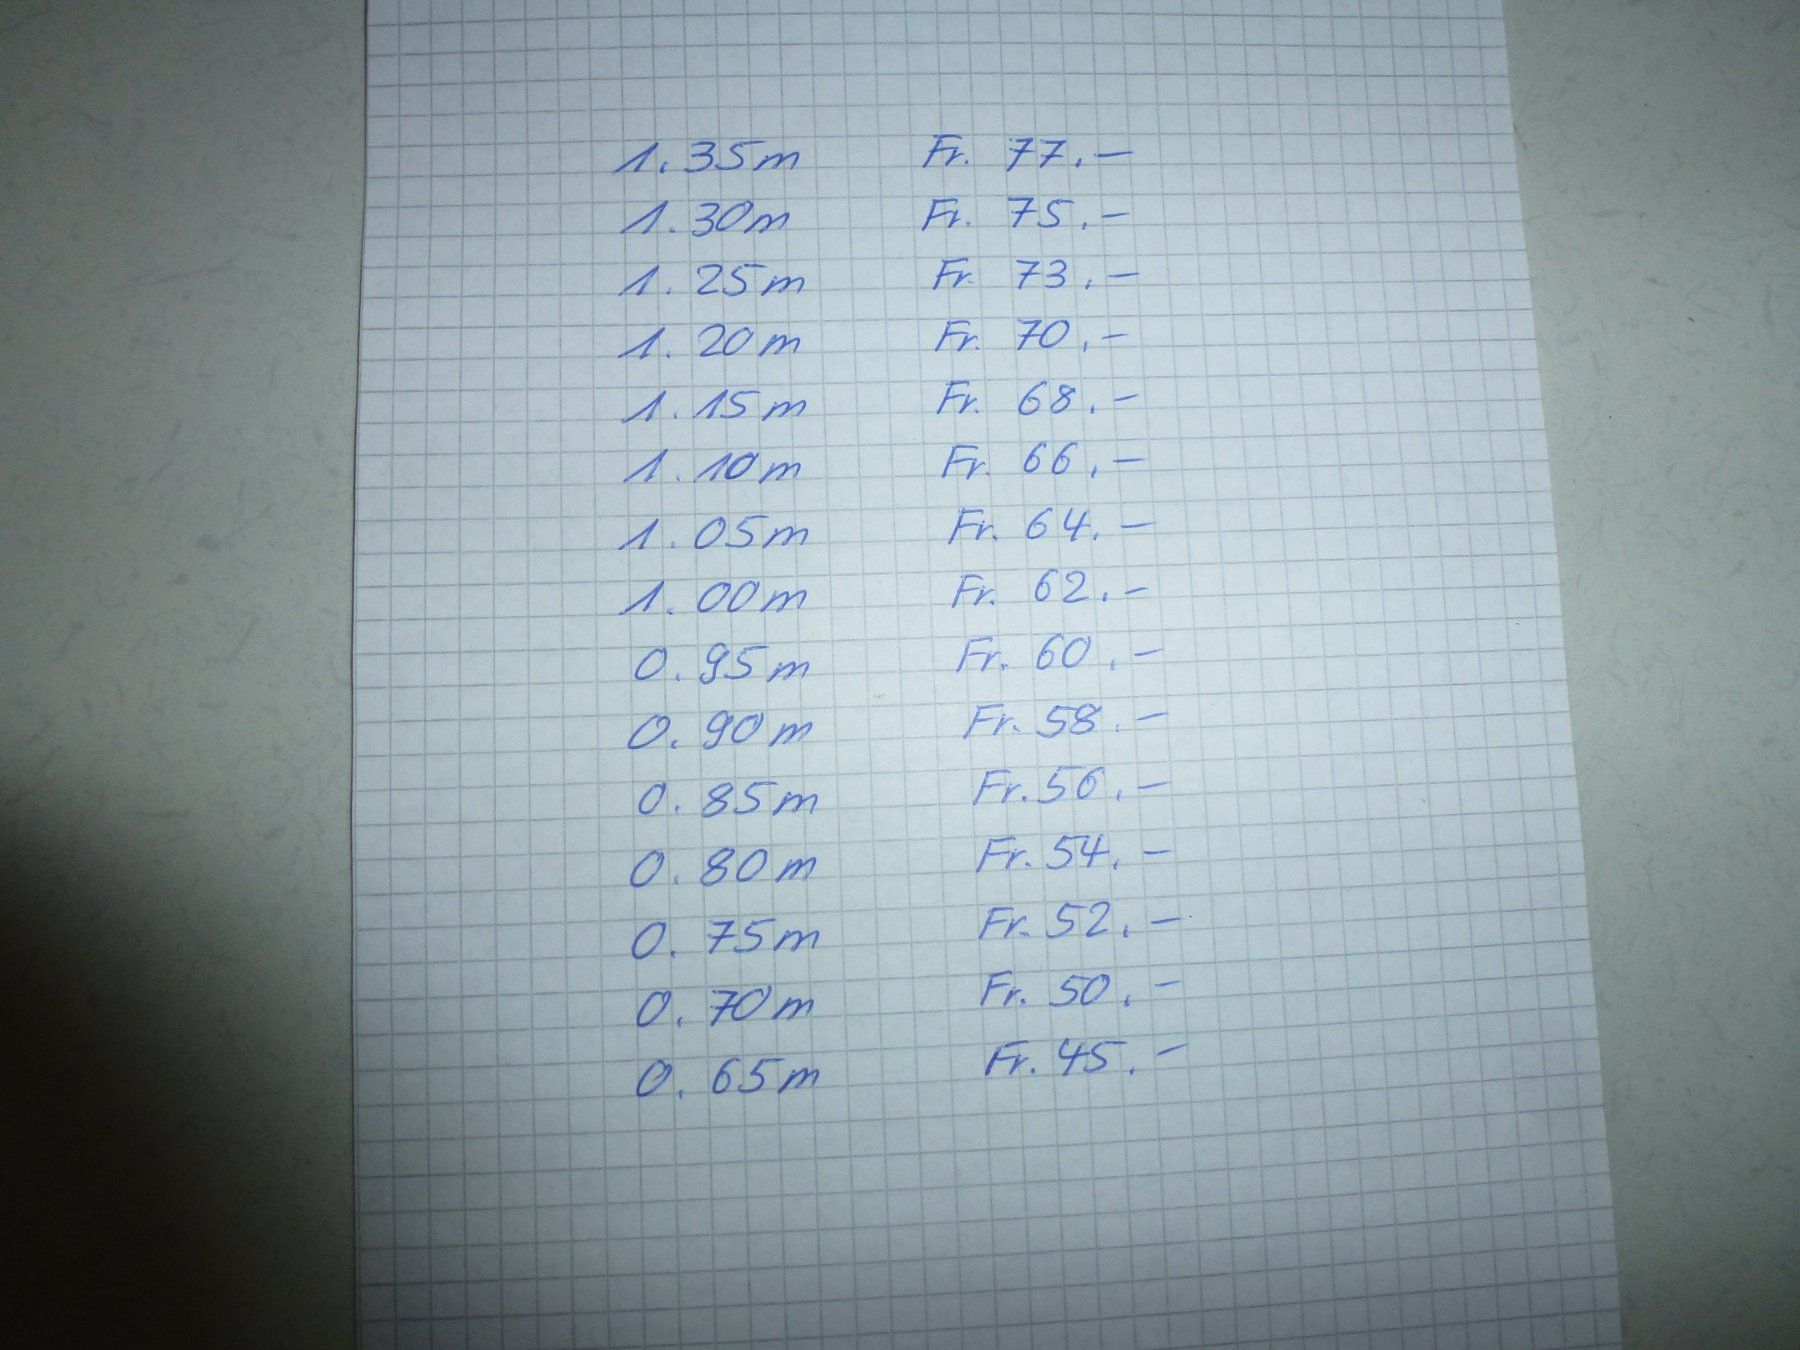 1.35m Fr. 77.-
1.30m Fr. 75.-
1.25m Fr. 73.-
1.20m Fr. 70.-
1.15m Fr. 68.-
1.10m Fr. 66.-
1.05m Fr. 64.-
1.00m Fr. 62.-
0.95m Fr. 60.-
0.90m Fr. 58.-
0.85m Fr. 56.-
0.80m Fr. 54.-
0.75m Fr. 52.-
0.70m Fr. 50.-
0.65m Fr. 45.-